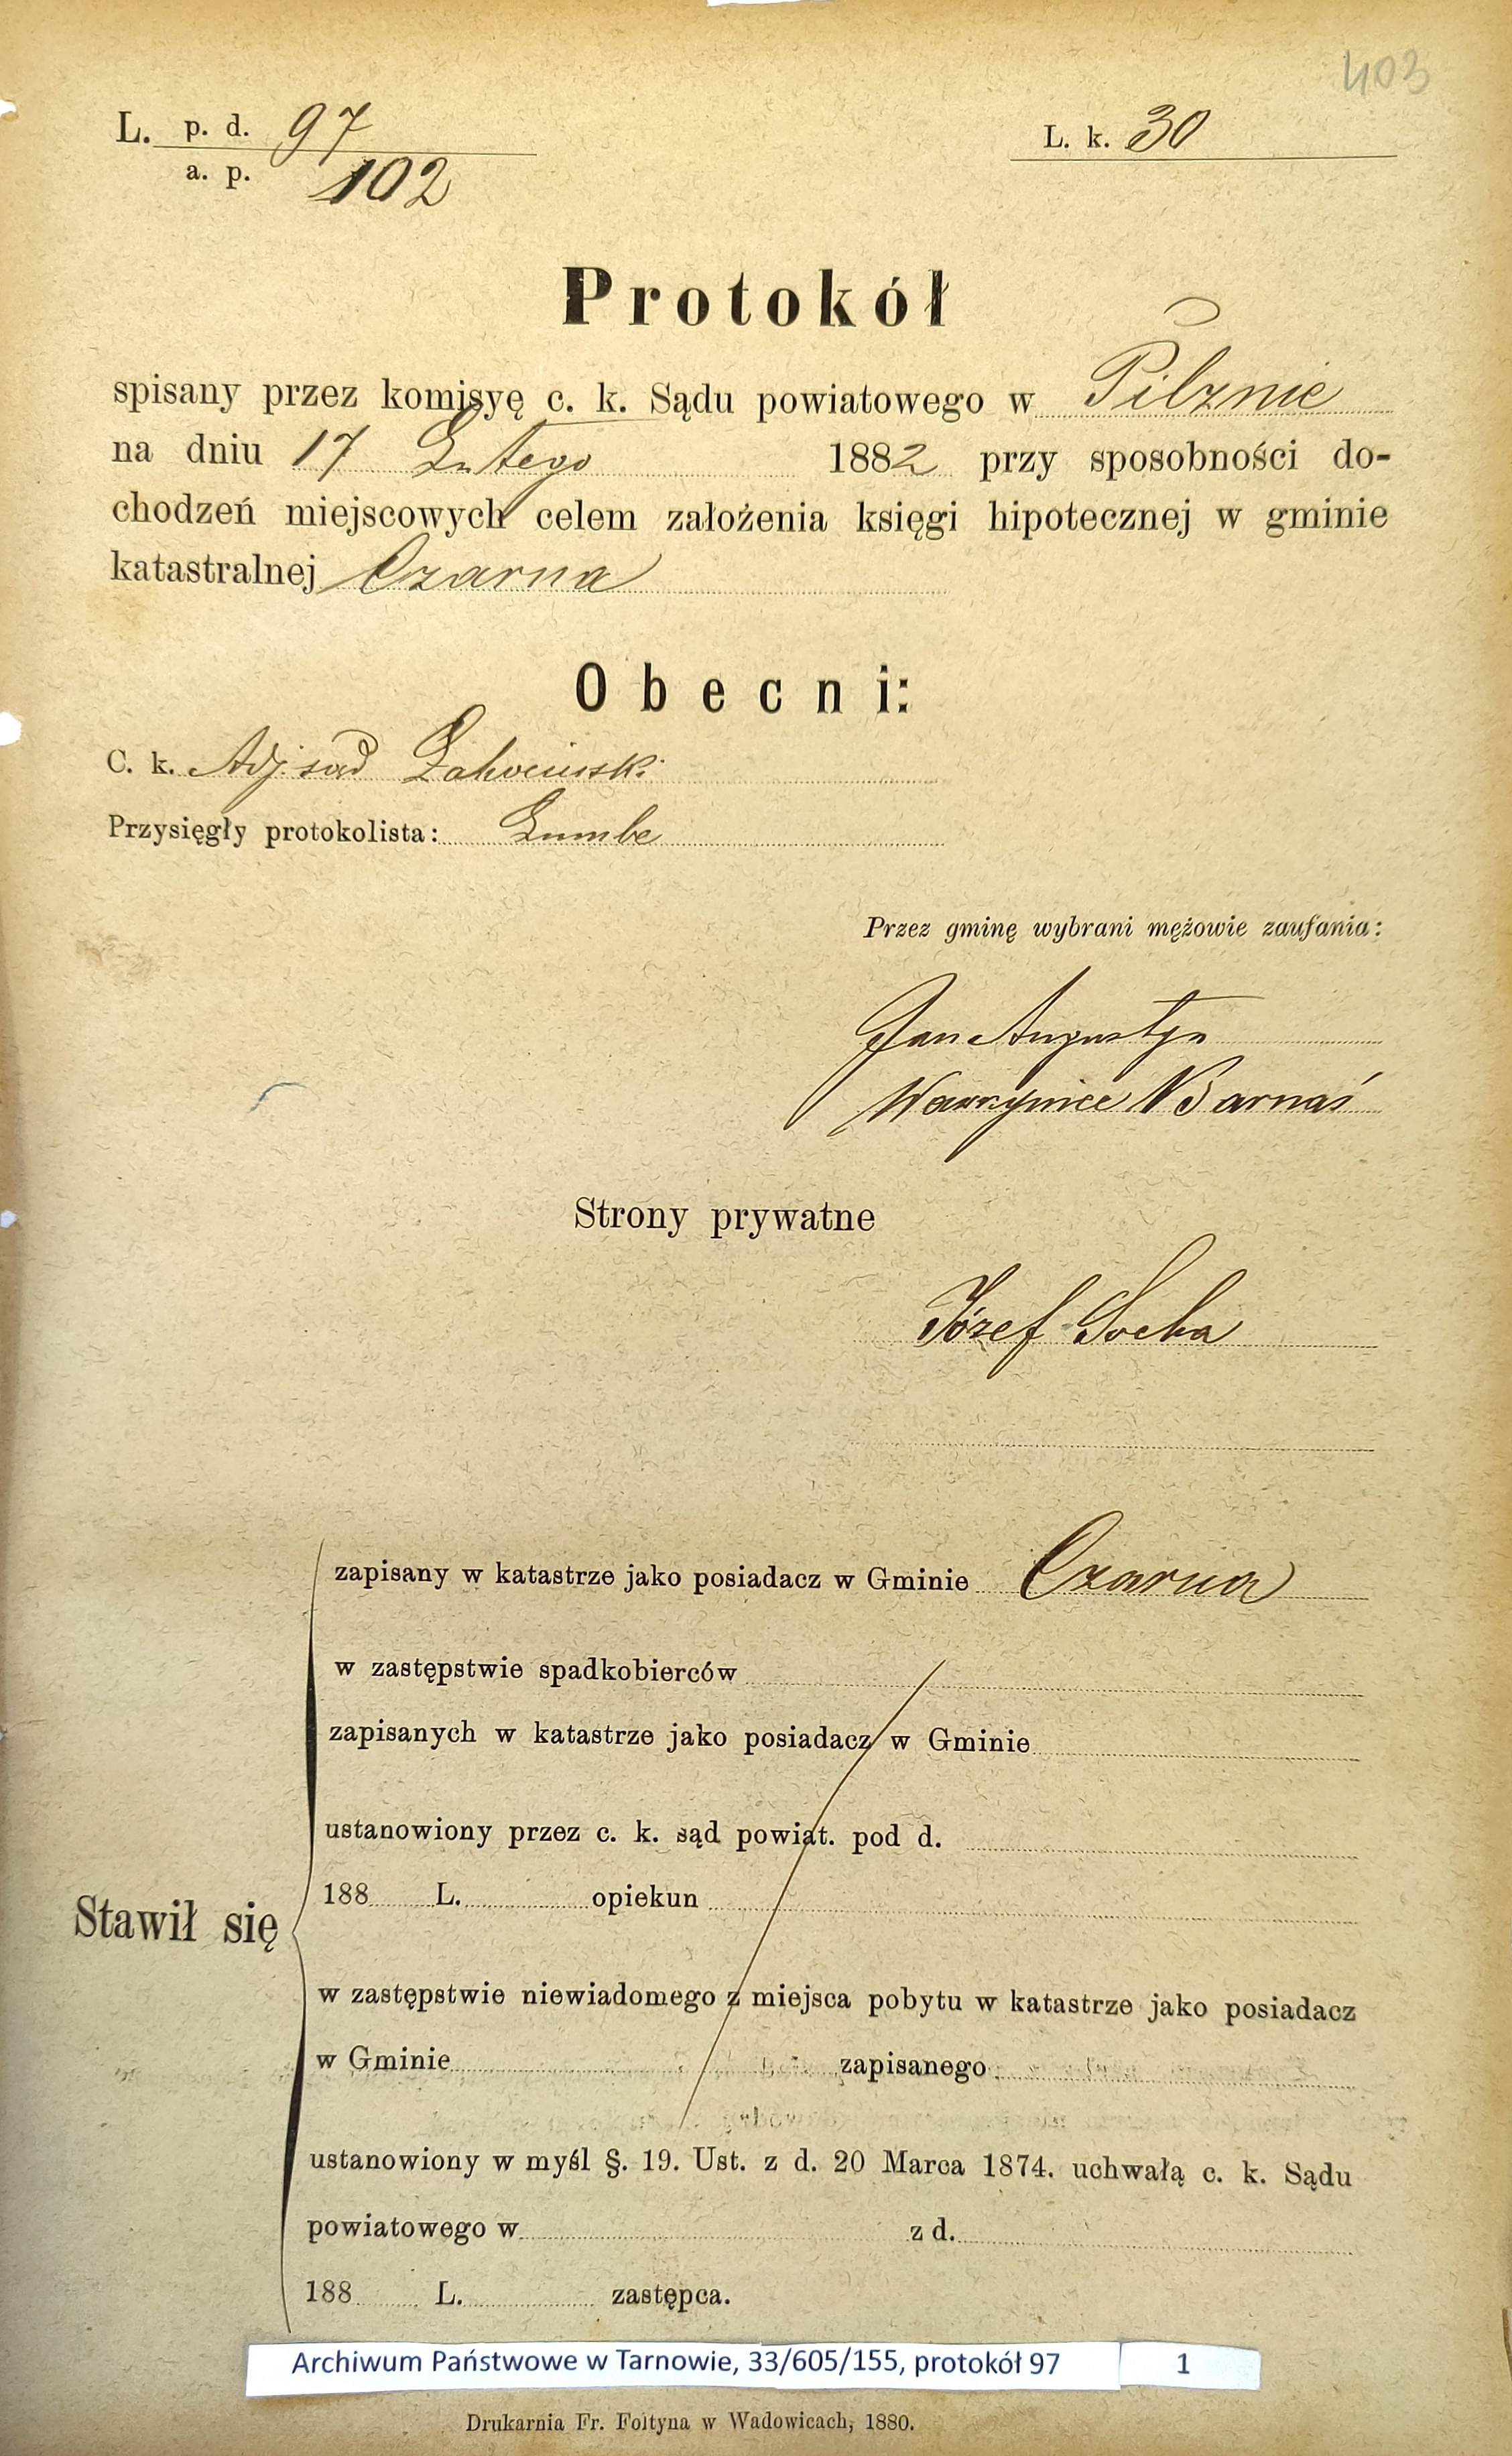 403
L. p. d. 97
a. p. 102
L. k. 30
Protokół
spisany przez komisyę c. k. Sądu powiatowego w Pilznie
na dniu 17 Lutego 1882 przy sposobności do-
chodzeń miejscowych celem założenia księgi hipotecznej w gminie
katastralnej Czarna
Obecni:
C. k. Adj. sąd
Przysięgły protokolista:
Przez gminę wybrani mężowie zaufania:
Jan Augustyn
Wawrzyniec Barnaś
Strony prywatne
Józef Socha
zapisany w katastrze jako posiadacz w Gminie Czarna
w zastępstwie spadkobierców
zapisanych w katastrze jako posiadacz w Gminie
ustanowiony przez c. k. sąd powiat. pod d.
188 L. opiekun
Stawił się
w zastępstwie niewiadomego z miejsca pobytu w katastrze jako posiadacz
w Gminie zapisanego
ustanowiony w myśl §. 19. Ust. z d. 20 Marca 1874. uchwałą c. k. Sądu
powiatowego w z d.
188 L. zastępca.
Archiwum Państwowe w Tarnowie, 33/605/155, protokół 97 1
Drukarnia Fr. Foltyna w Wadowicach, 1880.